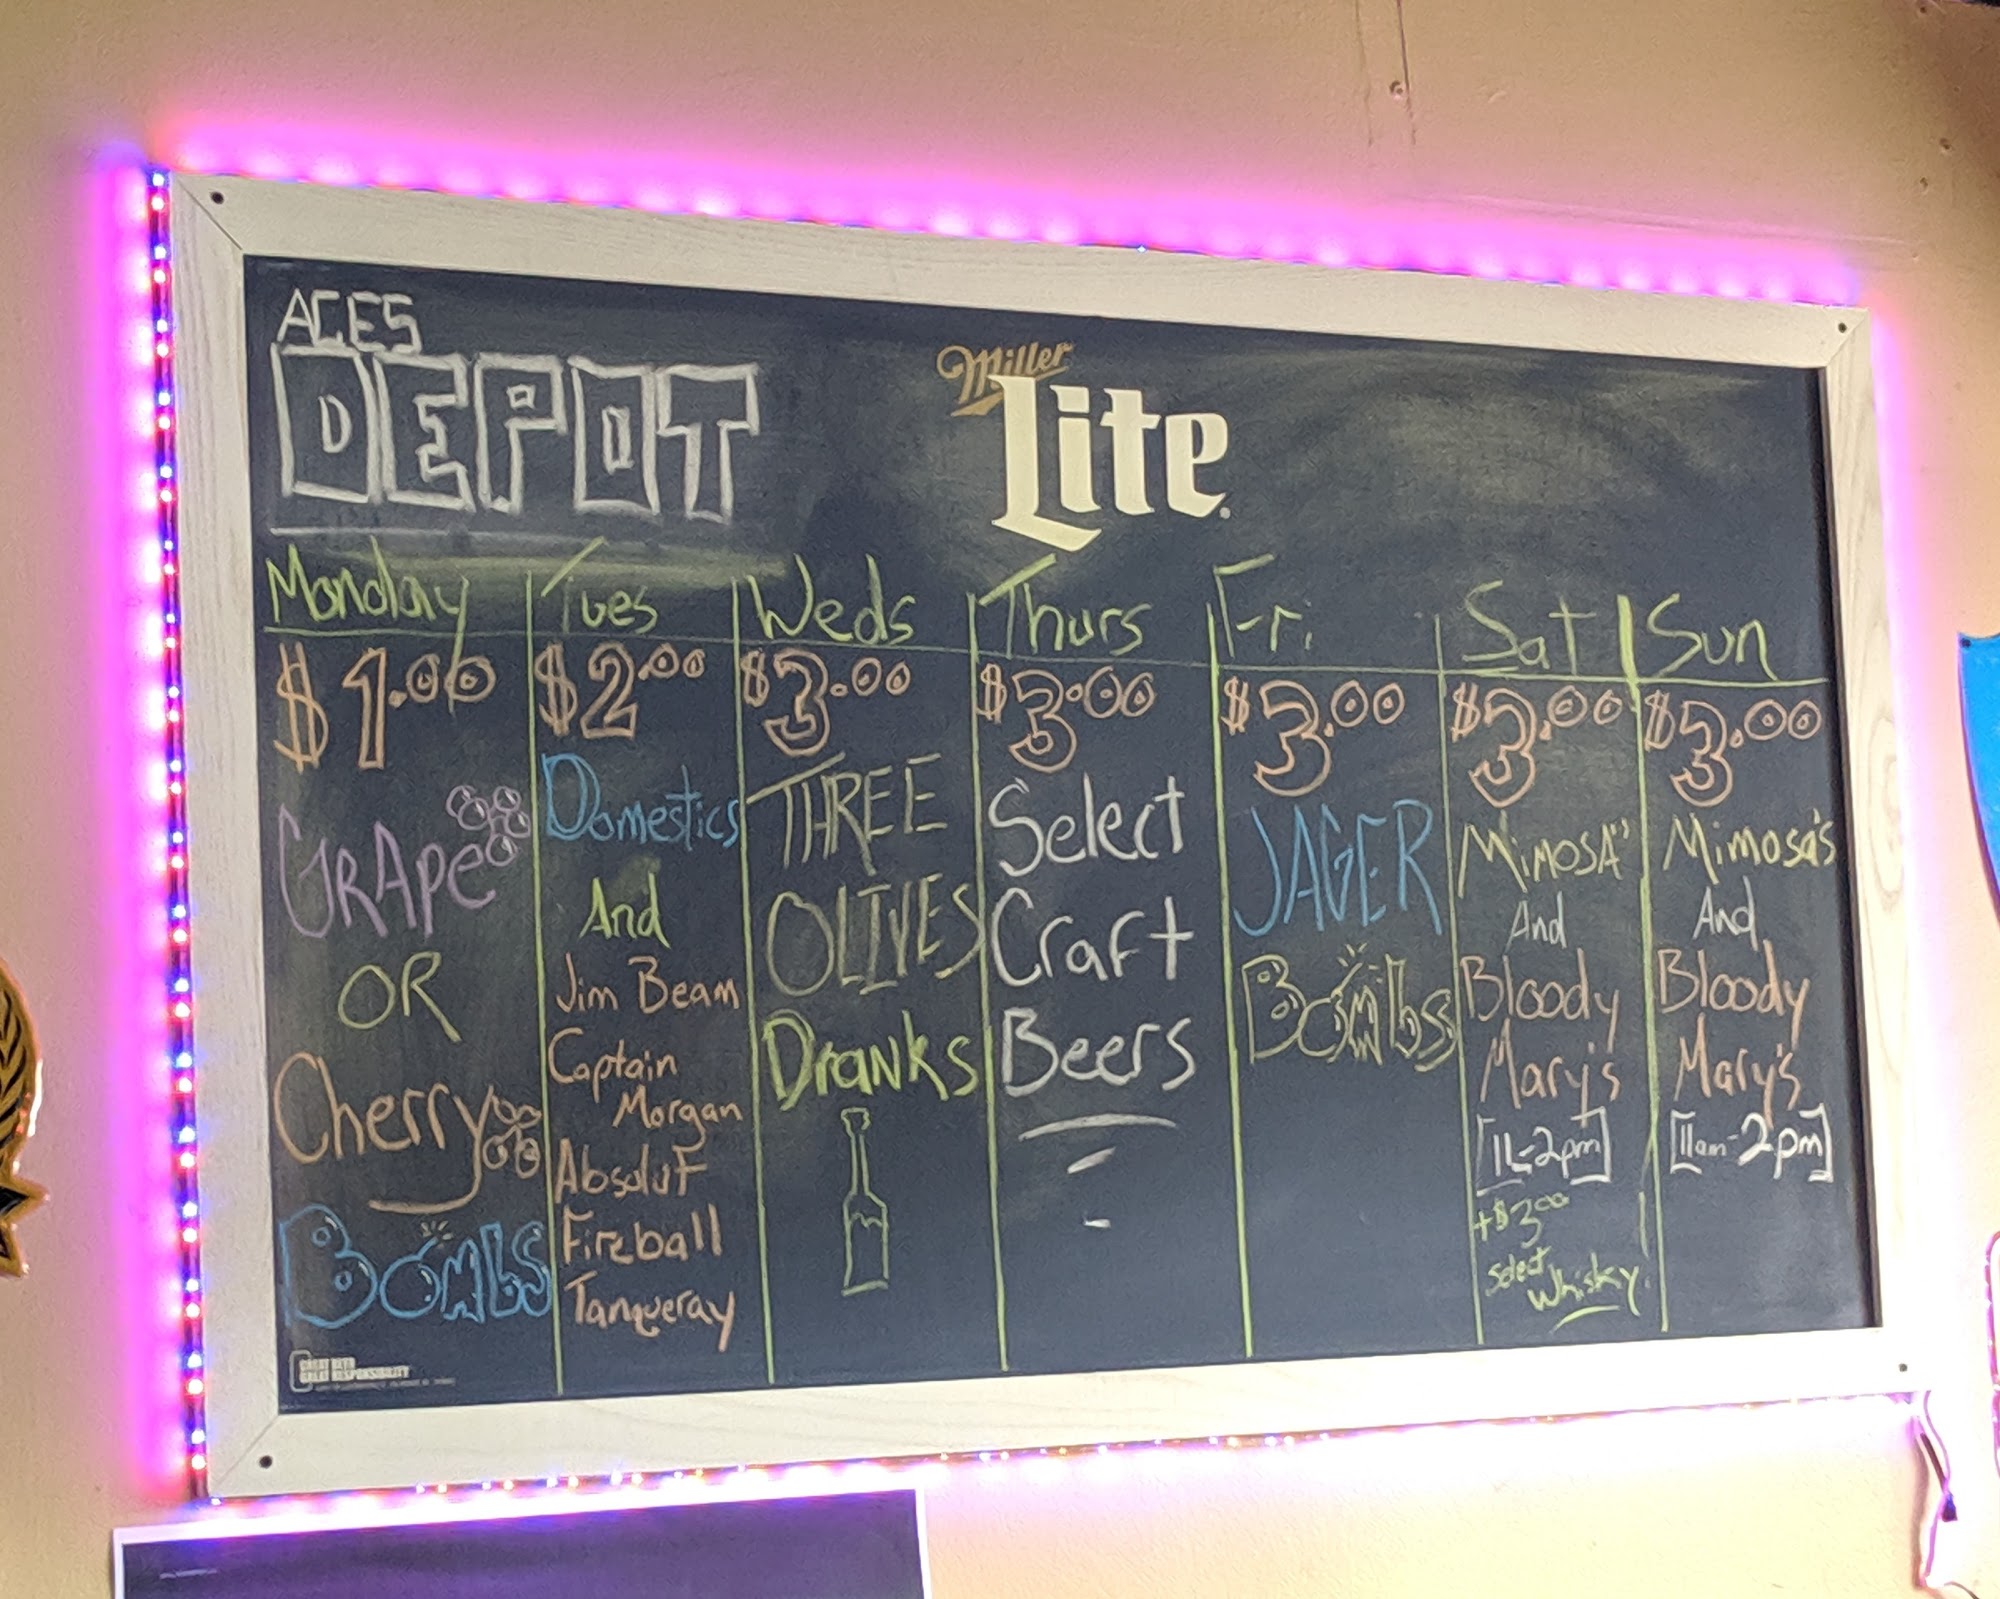 ACES
DEPOT
Miller
Lite
Monday
$1.00
GRApe
OR
Cherry
BOMbS
Tues
$2.00
Domestics
And
Jim Beam
Captain
Morgan
Absolut
Fireball
Tanqueray
Weds
$3.00
THREE
OLIVES
DranKs
Thurs
$3.00
Select
Craft
Beers
Fri.
$3.00
JAGER
BOMbs
Sat
$3.00
MiMOSA's
And
Bloody
Mary's
[11-2pm]
+$3.00
Select
Whisky.
Sun
$3.00
Mimosa's
And
Bloody
Mary's
[11am-2pm]
GREAT BEER
GREAT RESPONSIBILITY